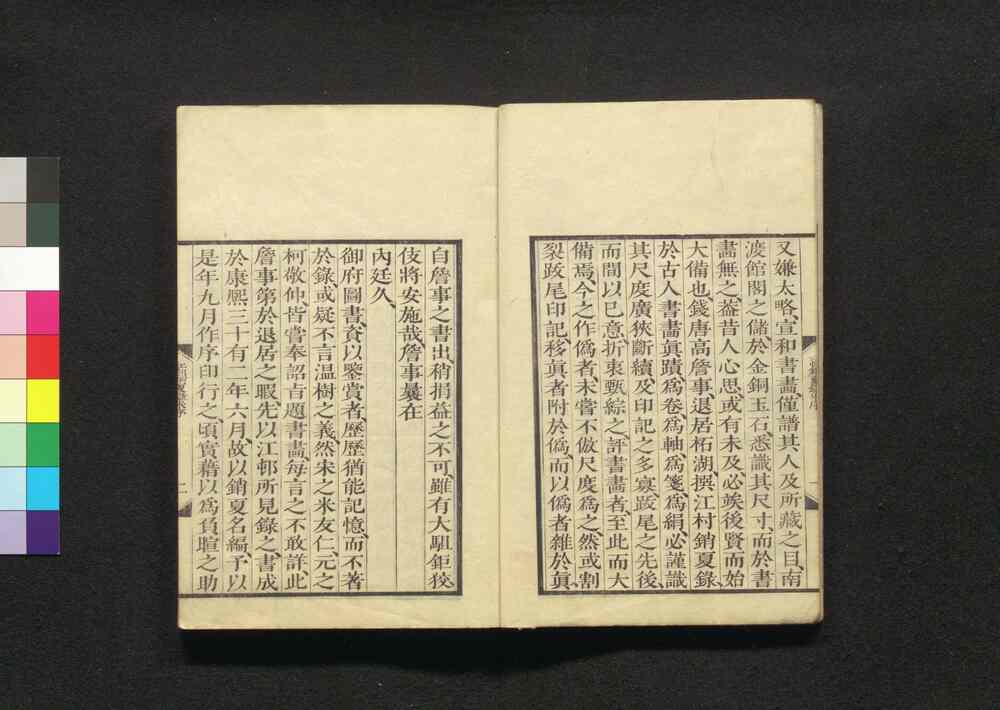 又嫌太略、宣和書畫、僅譜其人及所藏之目、南
渡館閣之儲、於金銅玉石、悉識其尺寸、而於書
畫無之、葢昔人心思、或有未及、必竢後賢而始
大備也、錢唐高詹事退居柘湖、撰江村銷夏錄、
於古人書畫眞蹟、爲卷爲軸、爲箋爲絹、必謹識
其尺度廣狹斷續、及印記之多寡、跋尾之先後、
而間以已意、折衷甄綜之、評書畫者、至此而大
備焉、今之作僞者、未嘗不倣尺度爲之、然或割
裂跋尾印記、移眞者附於僞、而以僞者雜於眞、
自詹事之書出、稍損益之不可、雖有大駔鉅狡、
伎將安施哉、詹事曩在
內廷久、
御府圖書、資以鑒賞者、歷歷猶能記憶、而不著
於錄、或疑不言温樹之義、然宋之米友仁、元之
柯敬仲、皆嘗奉詔旨題書畫、每言之不敢詳、此
詹事第於退居之暇、先以江邨所見錄之、書成
於康熙三十有二年六月、故以銷夏名編、予以
是年九月作序印行之、頃實藉以爲負暄之助
二